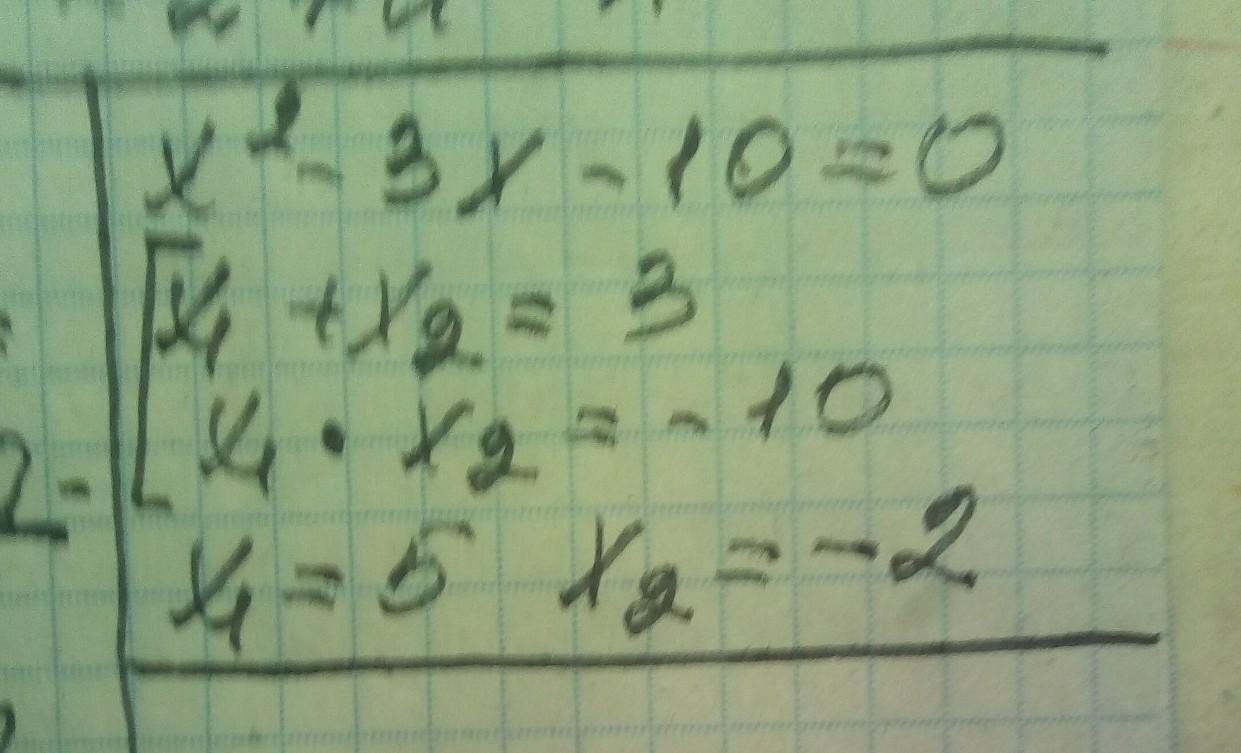 x² - 3x - 10 = 0
x₁ + x₂ = 3
x₁ · x₂ = - 10
x₁ = 5 x₂ = - 2